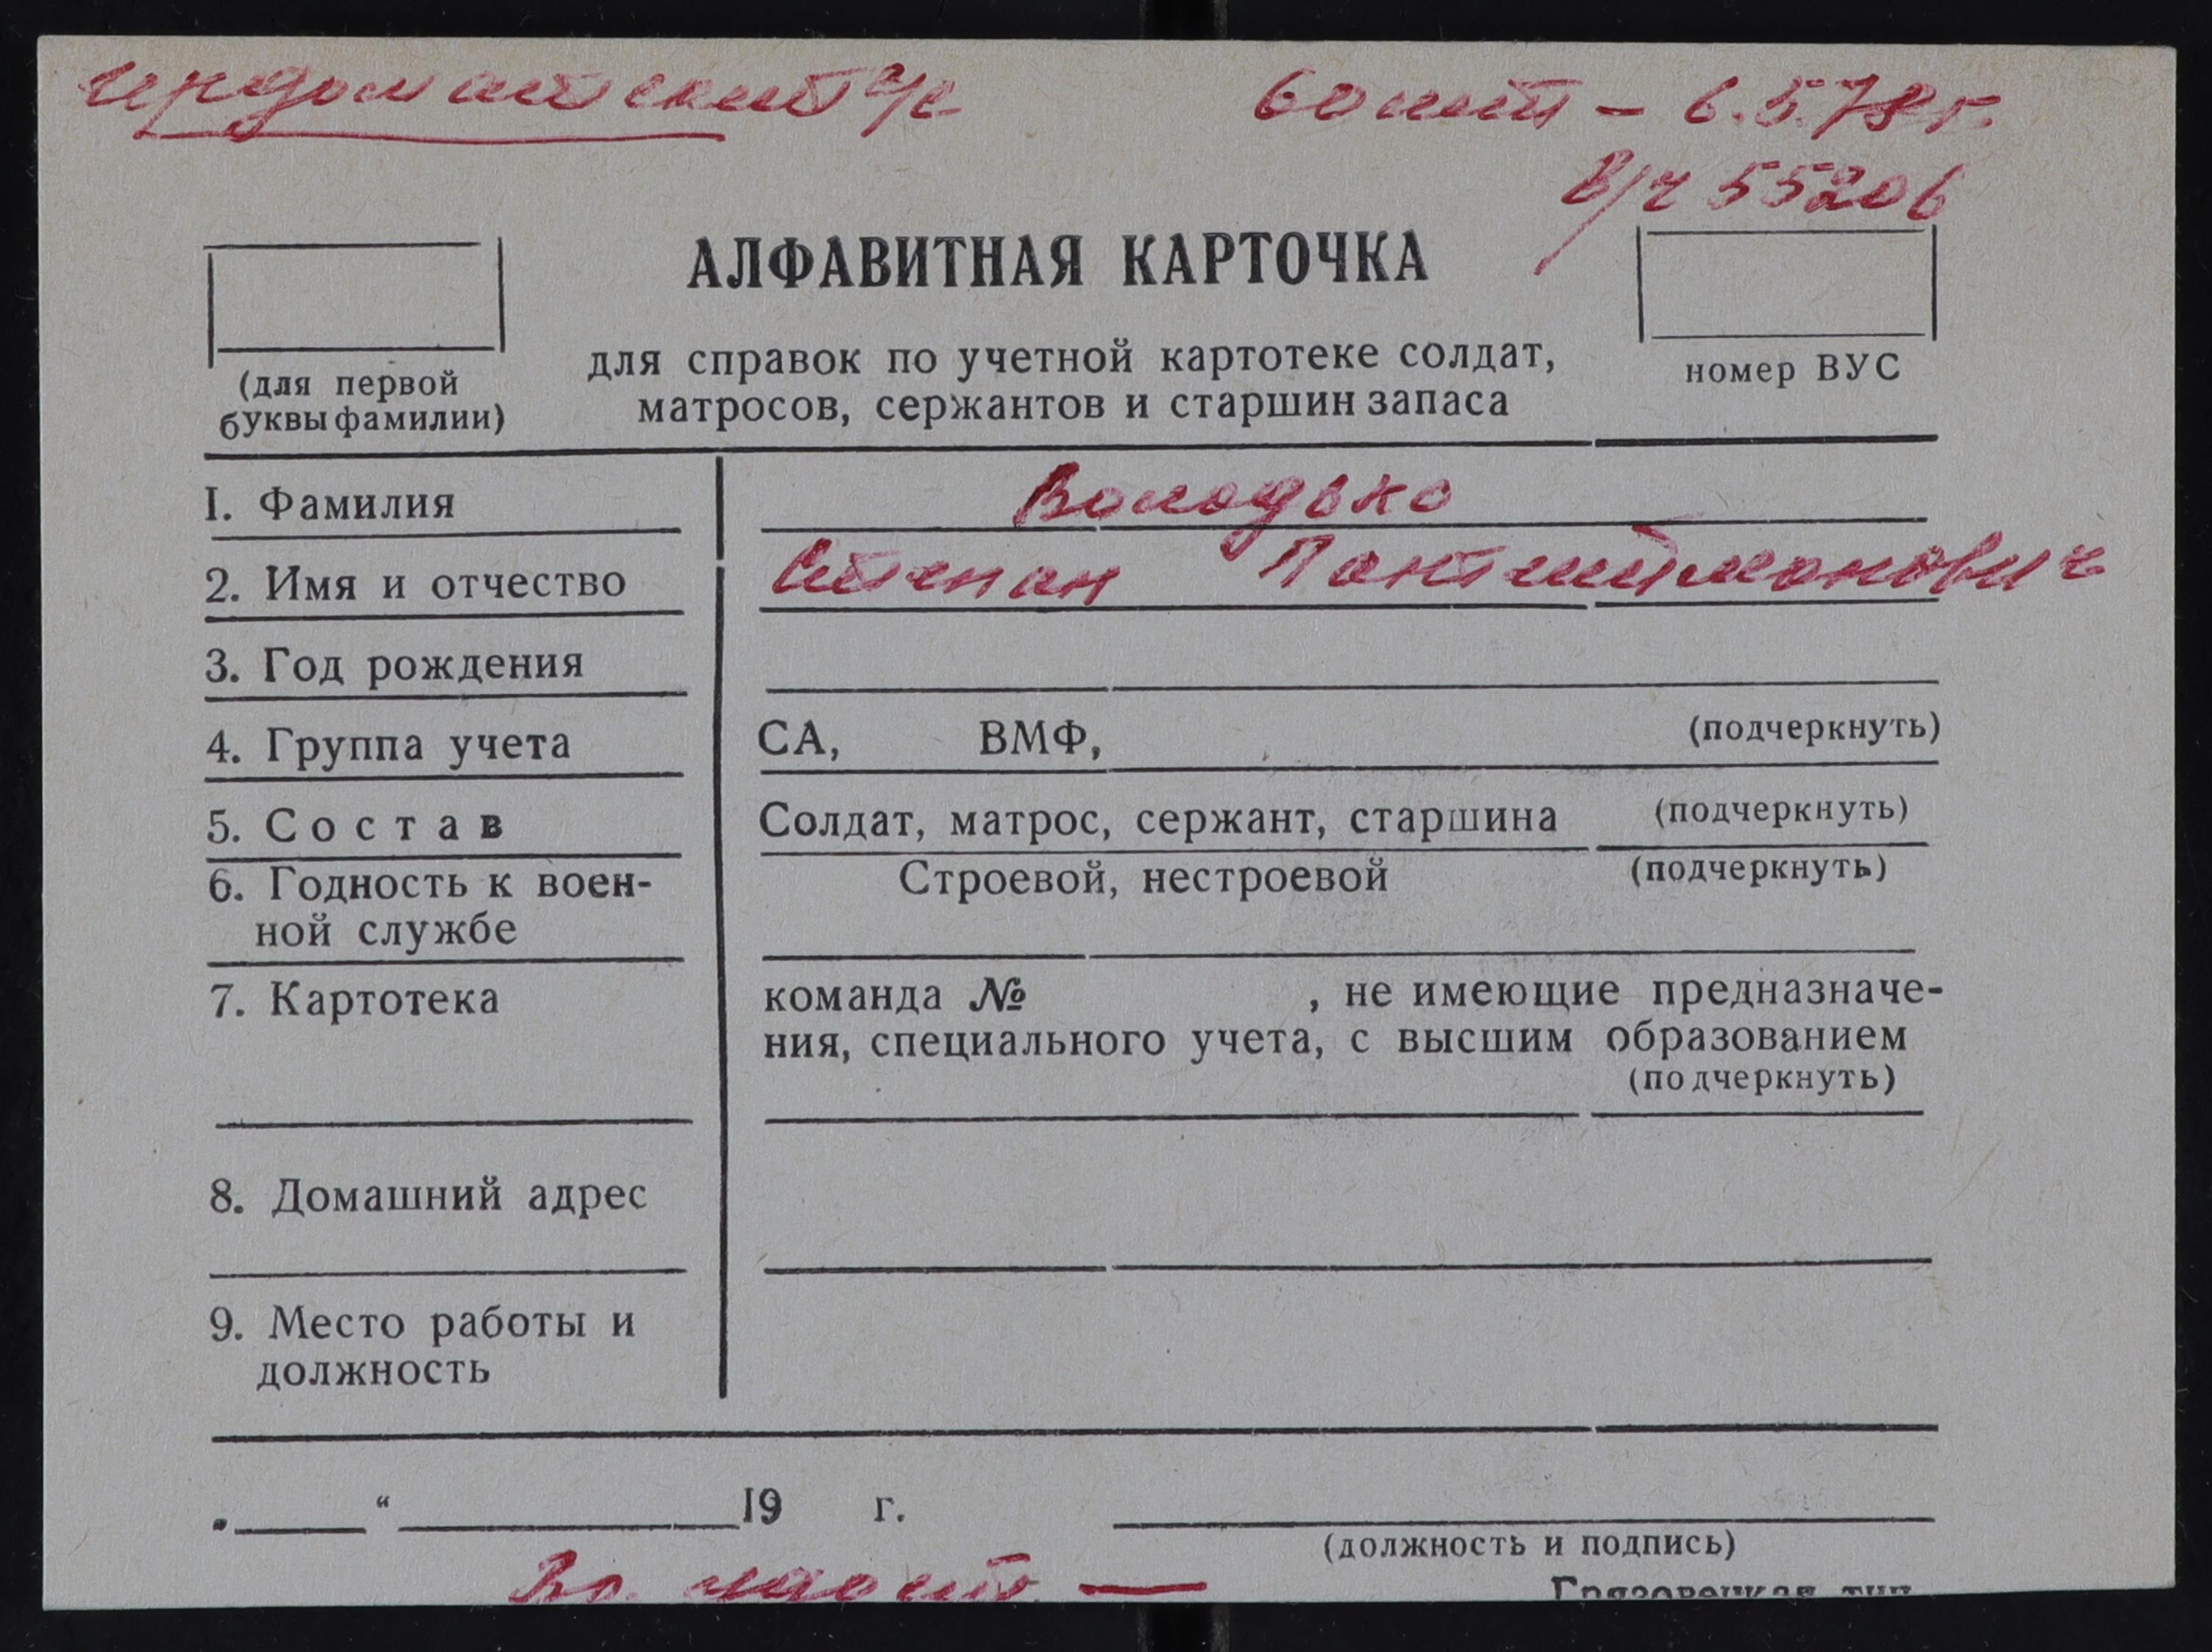 Ирдоматский с/с
60 лет - 6.5.78 г.
в/ч 55206
АЛФАВИТНАЯ КАРТОЧКА
для справок по учетной картотеке солдат,
матросов, сержантов и старшин запаса
(для первой
буквы фамилии)
номер ВУС
1. Фамилия Володько
2. Имя и отчество Степан Пантилимонович
3. Год рождения
4. Группа учета СА, ВМФ, (подчеркнуть)
5. Состав Солдат, матрос, сержант, старшина (подчеркнуть)
6. Годность к воен-
ной службе
Строевой, нестроевой (подчеркнуть)
7. Картотека
команда № , не имеющие предназначе-
ния, специального учета, с высшим образованием
(подчеркнуть)
8. Домашний адрес
9. Место работы и
должность
" 19 г.
(должность и подпись)
Грязовецкая тип.